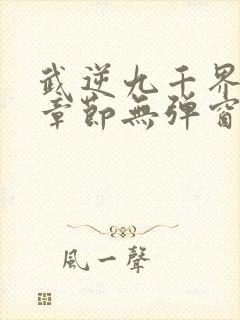 武逆九千界
章節無彈窗
風一聲